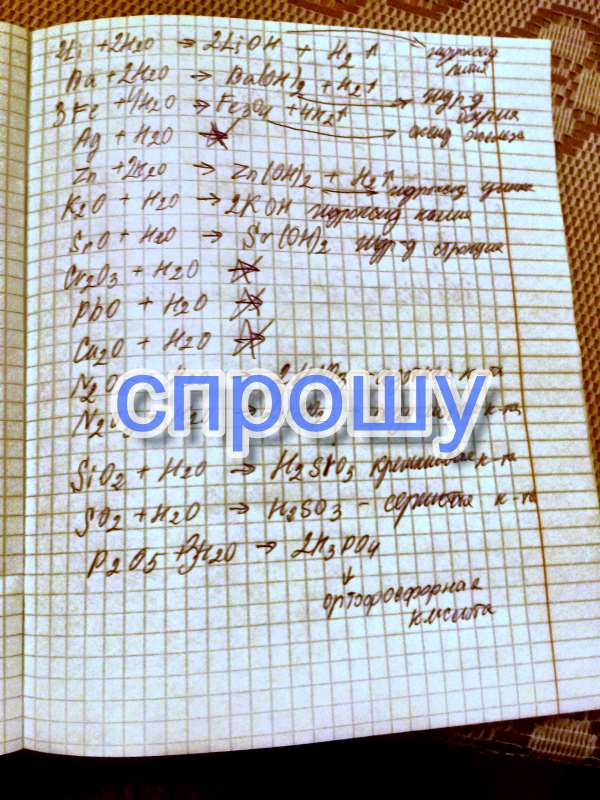 2Li + 2H2O → 2LiOH + H2↑ гидроксид лития
Ba + 2H2O → Ba(OH)2 + H2↑ гидр-д бария
3Fe + 4H2O → Fe3O4 + 4H2↑ оксид железа
Ag + H2O
Zn + 2H2O → Zn(OH)2 + H2↑ гидроксид цинка
K2O + H2O → 2KOH гидроксид калия
SrO + H2O → Sr(OH)2 гидр-д стронция
Cr2O3 + H2O
PbO + H2O
Cu2O + H2O
N2O к-та
спрошу
N2O к-та
SiO2 + H2O → H2SiO3 кремниевая к-та
SO2 + H2O → H2SO3 - сернистая к-та
P2O5 + 3H2O → 2H3PO4
↓
ортофосфорная
кислота